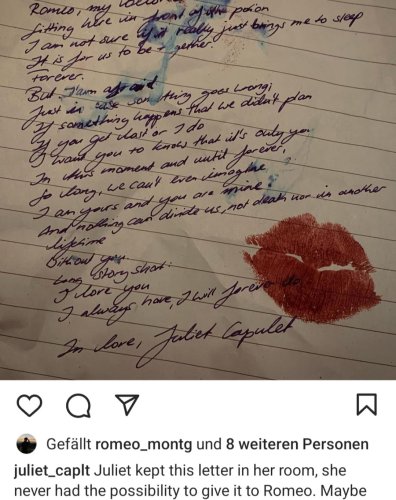 Romeo, my
Sitting here in front of the potion
I am not sure if it really just brings me to sleep
It is for us to be together.
Forever.
But I am afraid
Just in case something goes wrong;
If something happens that we didn't plan
If you get lost or I do
I want you to know that it's only you
In this moment and until forever,
So long, we can't even imagine
I am yours and you are mine!
And nothing can divide us, not death nor in another
lifetime
Without you.
Long story short:
I love you
I always have, I will forever do
In love, Juliet Capulet
Gefällt romeo_montg und 8 weiteren Personen
juliet_caplt Juliet kept this letter in her room, she
never had the possibility to give it to Romeo. Maybe